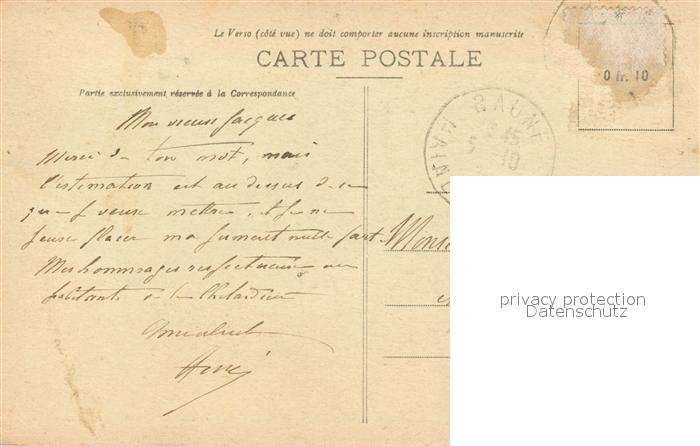 Le Verso (côté vue) ne doit comporter aucune inscription manuscrite
CARTE POSTALE
Partie exclusivement réservée à la Correspondance
0 fr. 10
Mon vieux Jacques
Merci de ton mot, mais
l'estimation est au dessus de ce
que je veux mettre, et je ne
peux placer ma jument nulle part.
Mes hommages respectueux aux
habitants de la
Amicalement
BAUN
privacy protection
Datenschutz